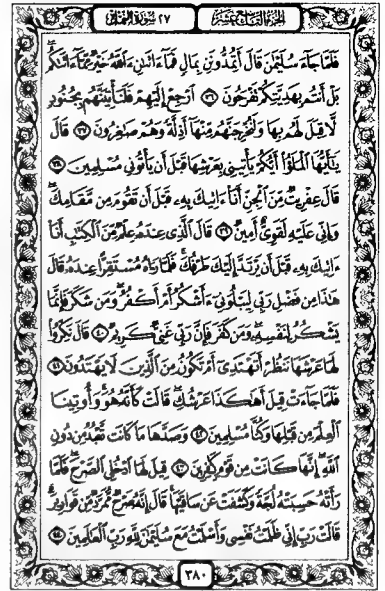 الجزء التاسع عشر
٢٧ سورة النمل
فَلَمَّا جَآءَ سُلَيْمَٰنَ قَالَ أَتُمِدُّونَنِ بِمَالٍ فَمَآ ءَاتَىٰنِۦَ ٱللَّهُ خَيْرٌ مِّمَّآ ءَاتَىٰكُم
بَلْ أَنتُم بِهَدِيَّتِكُمْ تَفْرَحُونَ ٣٦ ٱرْجِعْ إِلَيْهِمْ فَلَنَأْتِيَنَّهُم بِجُنُودٍ
لَّا قِبَلَ لَهُم بِهَا وَلَنُخْرِجَنَّهُم مِّنْهَآ أَذِلَّةً وَهُمْ صَٰغِرُونَ ٣٧ قَالَ
يَٰٓأَيُّهَا ٱلْمَلَؤُا۟ أَيُّكُمْ يَأْتِينِى بِعَرْشِهَا قَبْلَ أَن يَأْتُونِى مُسْلِمِينَ ٣٨
قَالَ عِفْرِيتٌ مِّنَ ٱلْجِنِّ أَنَا۠ ءَاتِيكَ بِهِۦ قَبْلَ أَن تَقُومَ مِن مَّقَامِكَ
وَإِنِّى عَلَيْهِ لَقَوِىٌّ أَمِينٌ ٣٩ قَالَ ٱلَّذِى عِندَهُۥ عِلْمٌ مِّنَ ٱلْكِتَٰبِ أَنَا۠
ءَاتِيكَ بِهِۦ قَبْلَ أَن يَرْتَدَّ إِلَيْكَ طَرْفُكَ فَلَمَّا رَءَاهُ مُسْتَقِرًّا عِندَهُۥ قَالَ
هَٰذَا مِن فَضْلِ رَبِّى لِيَبْلُوَنِىٓ ءَأَشْكُرُ أَمْ أَكْفُرُ وَمَن شَكَرَ فَإِنَّمَا
يَشْكُرُ لِنَفْسِهِۦ وَمَن كَفَرَ فَإِنَّ رَبِّى غَنِىٌّ كَرِيمٌ ٤٠ قَالَ نَكِّرُوا۟
لَهَا عَرْشَهَا نَنظُرْ أَتَهْتَدِىٓ أَمْ تَكُونُ مِنَ ٱلَّذِينَ لَا يَهْتَدُونَ ٤١
فَلَمَّا جَآءَتْ قِيلَ أَهَٰكَذَا عَرْشُكِ قَالَتْ كَأَنَّهُۥ هُوَ وَأُوتِينَا
ٱلْعِلْمَ مِن قَبْلِهَا وَكُنَّا مُسْلِمِينَ ٤٢ وَصَدَّهَا مَا كَانَت تَّعْبُدُ مِن دُونِ
ٱللَّهِ إِنَّهَا كَانَتْ مِن قَوْمٍ كَٰفِرِينَ ٤٣ قِيلَ لَهَا ٱدْخُلِى ٱلصَّرْحَ فَلَمَّا
رَأَتْهُ حَسِبَتْهُ لُجَّةً وَكَشَفَتْ عَن سَاقَيْهَا قَالَ إِنَّهُۥ صَرْحٌ مُّمَرَّدٌ مِّن قَوَارِيرَ
قَالَتْ رَبِّ إِنِّى ظَلَمْتُ نَفْسِى وَأَسْلَمْتُ مَعَ سُلَيْمَٰنَ لِلَّهِ رَبِّ ٱلْعَٰلَمِينَ ٤٤
٣٨٠